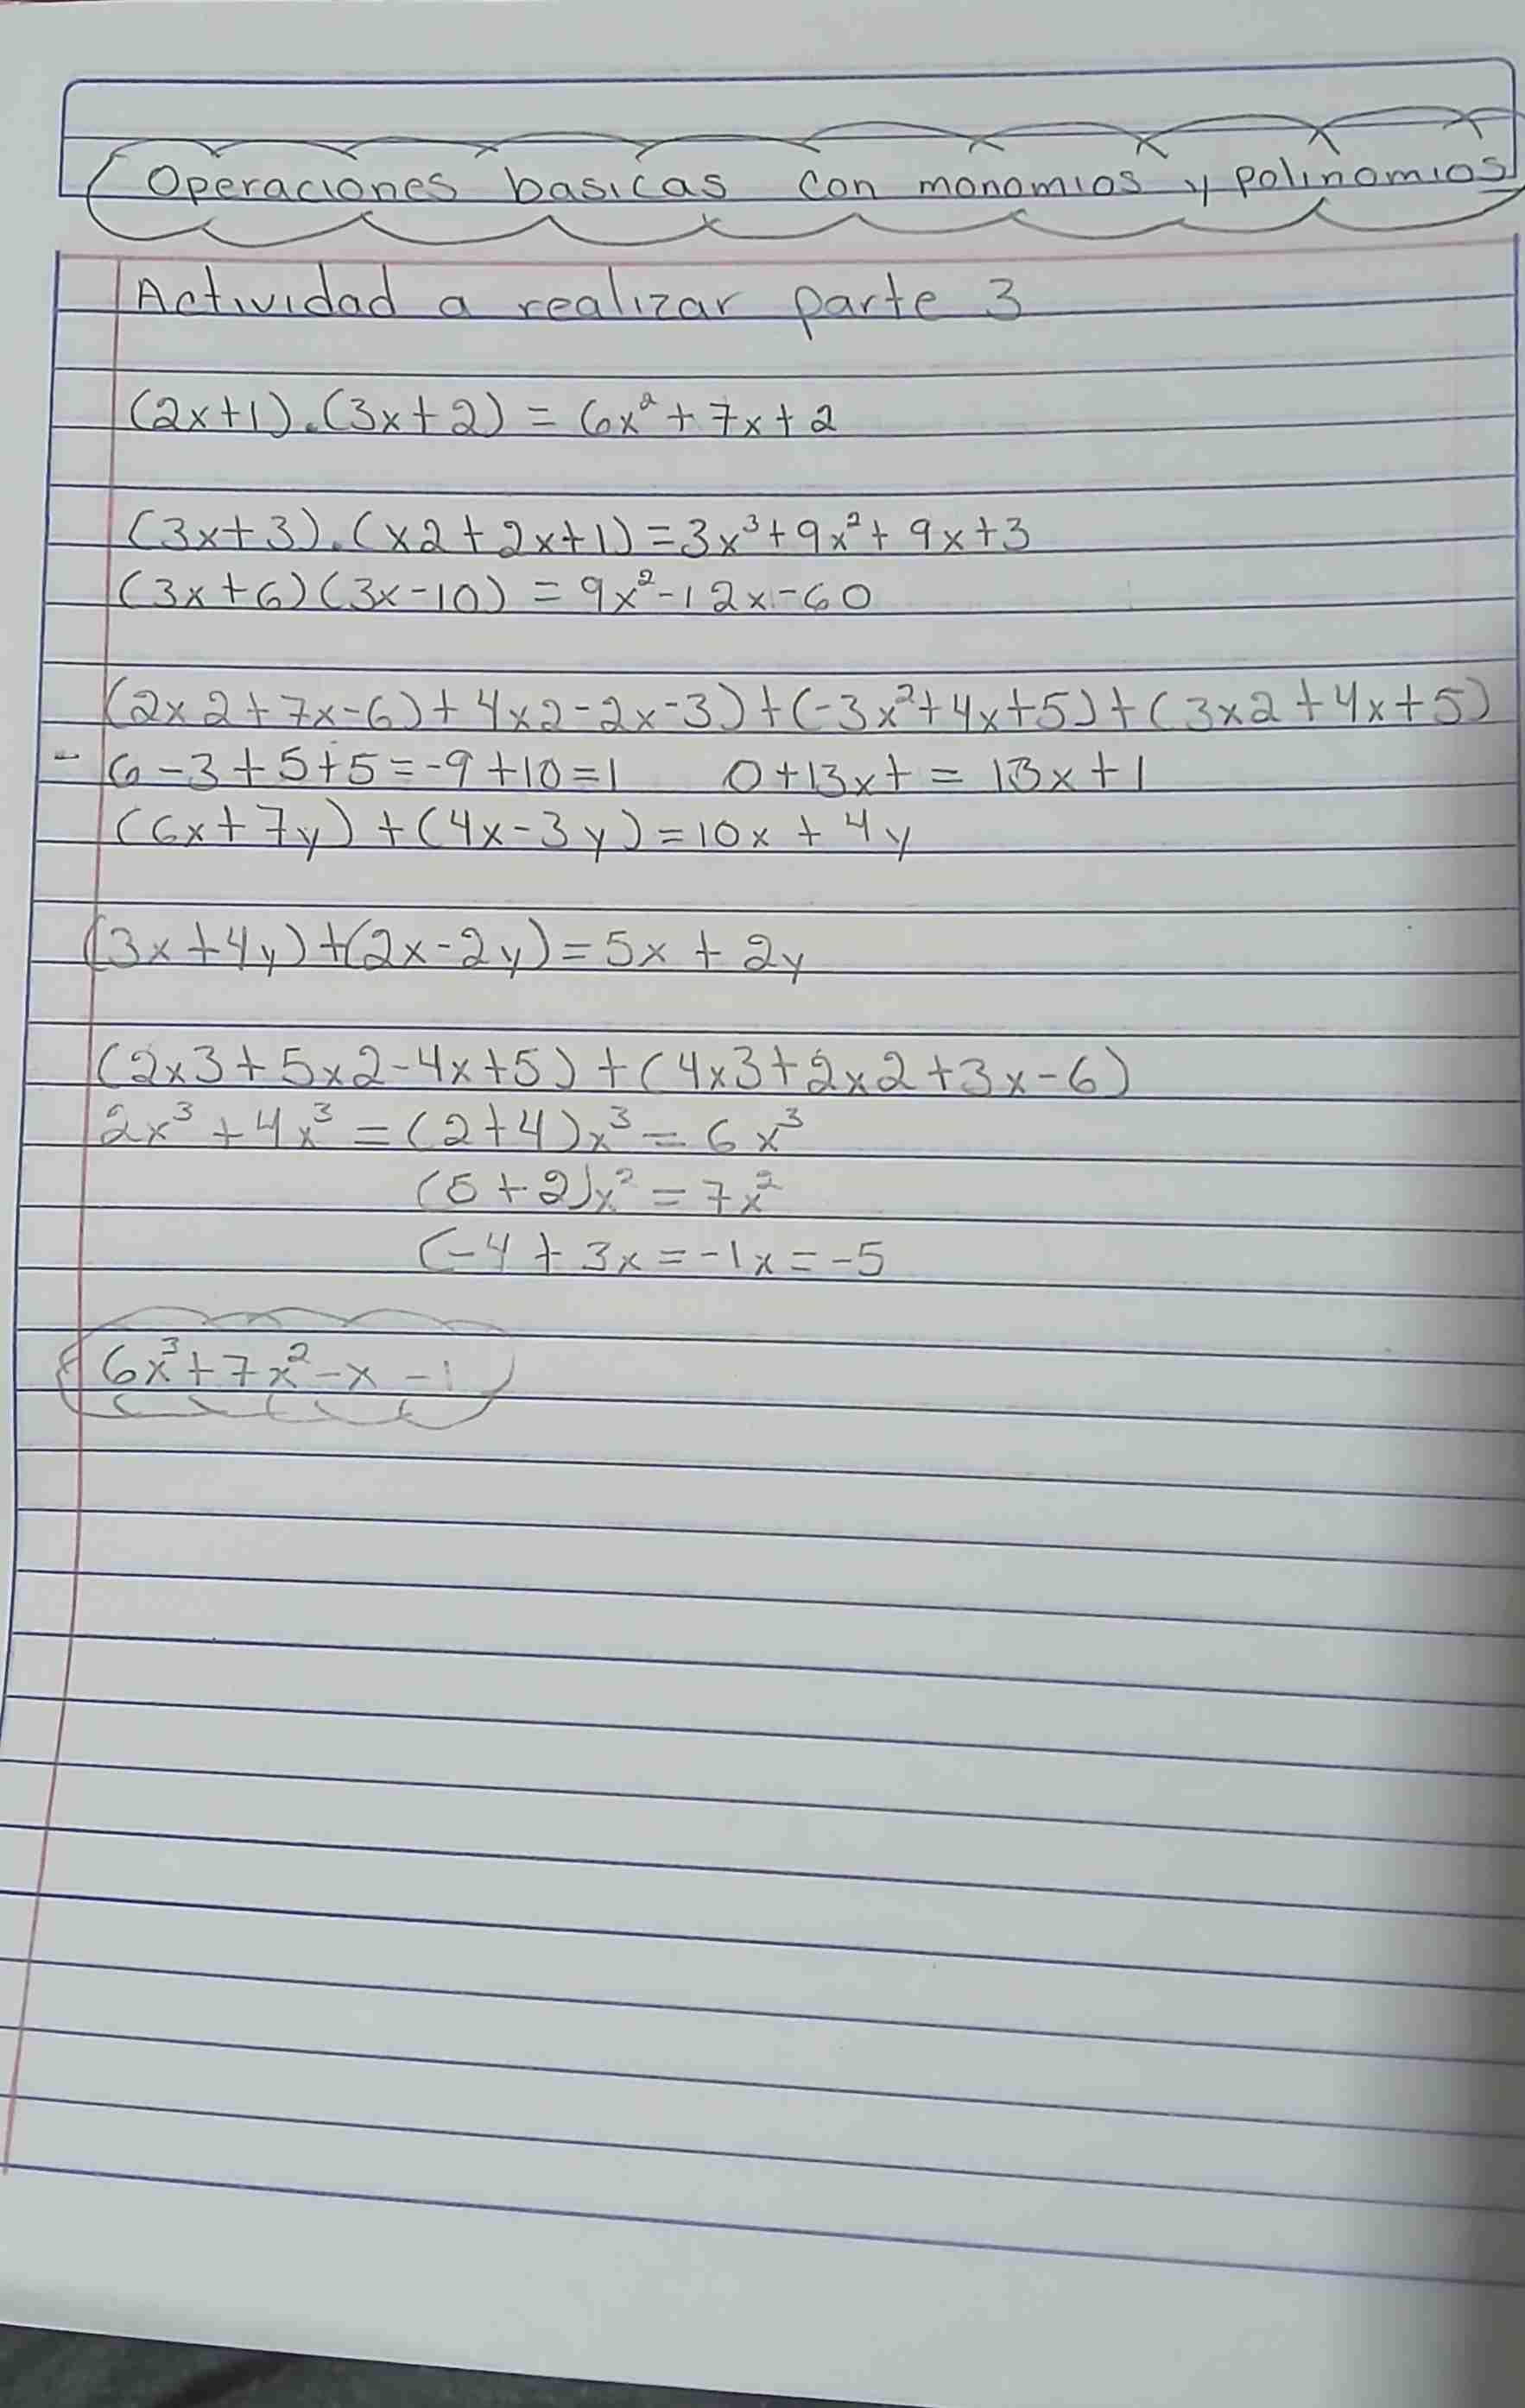 Operaciones basicas con monomios y polinomios
Actividad a realizar parte 3
(2x+1).(3x+2) = 6x² + 7x + 2
(3x+3).(x2+2x+1) = 3x³+9x²+9x+3
(3x+6)(3x-10) = 9x²-12x-60
(2x2+7x-6)+4x2-2x-3)+(-3x²+4x+5)+(3x2+4x+5)
-6-3+5+5=-9+10=1 0+13x+ = 13x+1
(6x+7y)+(4x-3y)=10x+4y
(3x+4y)+(2x-2y)=5x+2y
(2x3+5x2-4x+5)+(4x3+2x2+3x-6)
2x³+4x³=(2+4)x³=6x³
(5+2)x²=7x²
(-4+3x=-1x=-5
6x³+7x²-x-1